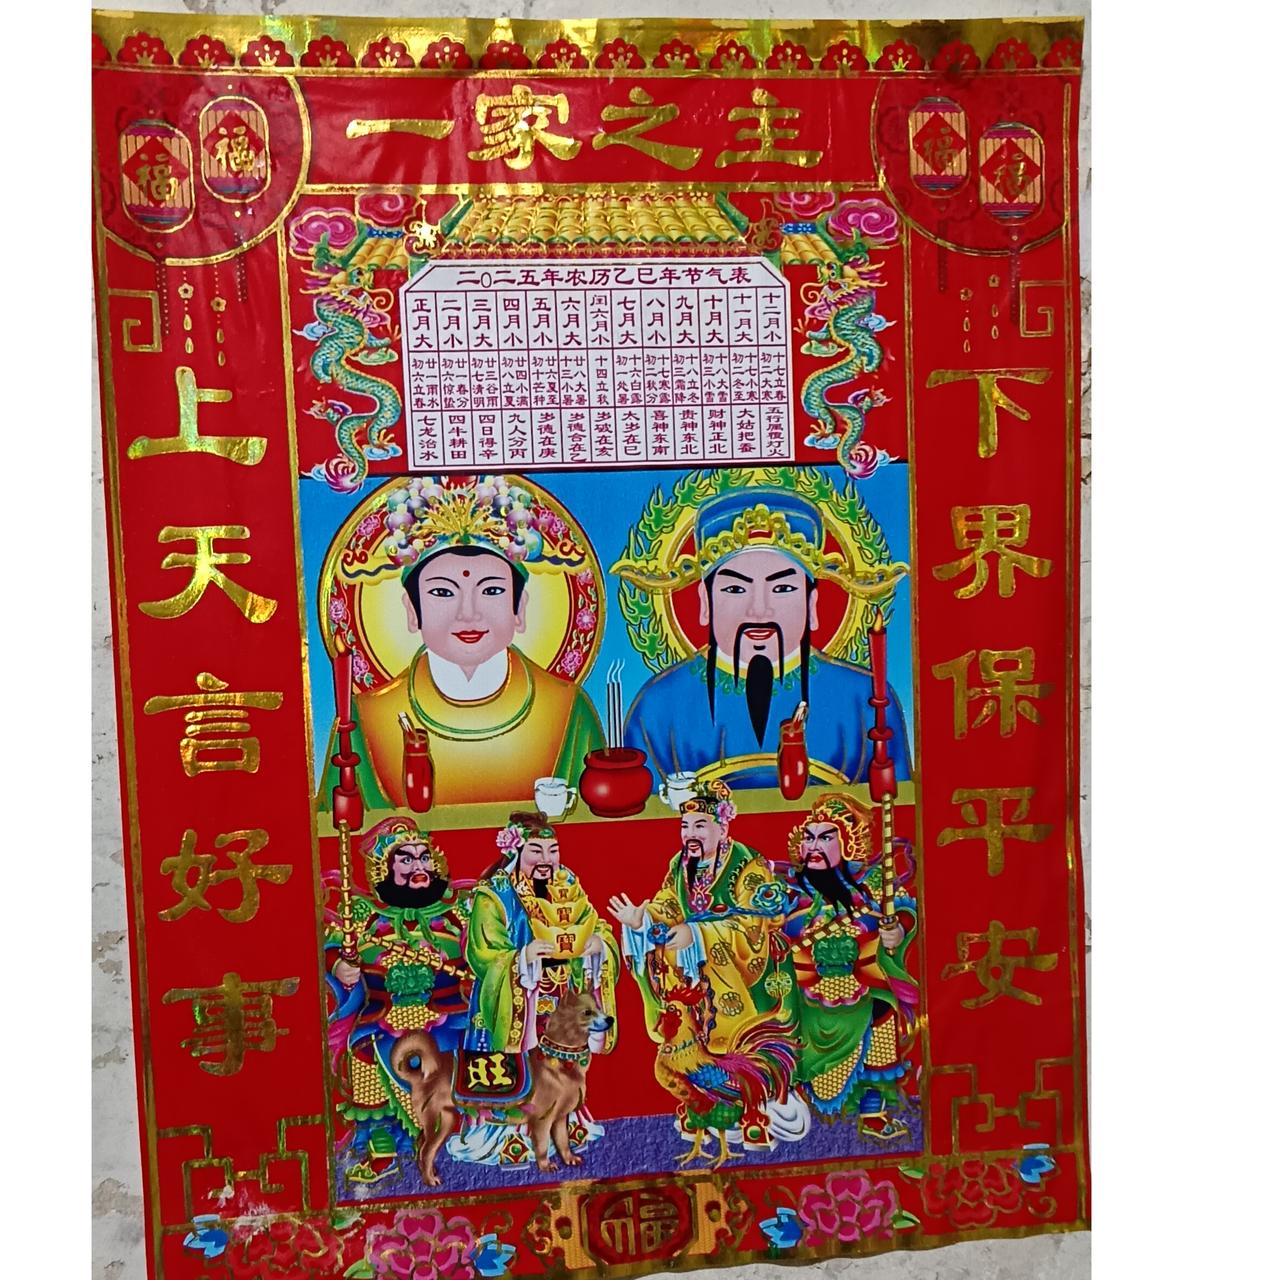 一家之主
福
福
福
福
二〇二五年农历乙巳年节气表
正月大 二月小 三月大 四月小 五月小 六月大 闰六月小 七月大 八月小 九月大 十月大 十一月大 十二月小
初六立春 廿一雨水 初六惊蛰 廿一春分 初七清明 廿三谷雨 初八立夏 廿四小满 初十芒种 廿六夏至 十三小暑 廿八大暑 十四立秋 初一处暑 十六白露 初二秋分 十七寒露 初三霜降 十八立冬 初三小雪 十八大雪 初二冬至 十七小寒 初二大寒 十七立春
七龙治水 四牛耕田 四日得辛 九人分丙 岁德在庚 岁德合在乙 岁破在亥 太岁在巳 喜神东南 贵神东北 财神正北 大姑把蚕 五行属覆灯火
上天言好事
下界保平安
寶
寶
寶
旺
福